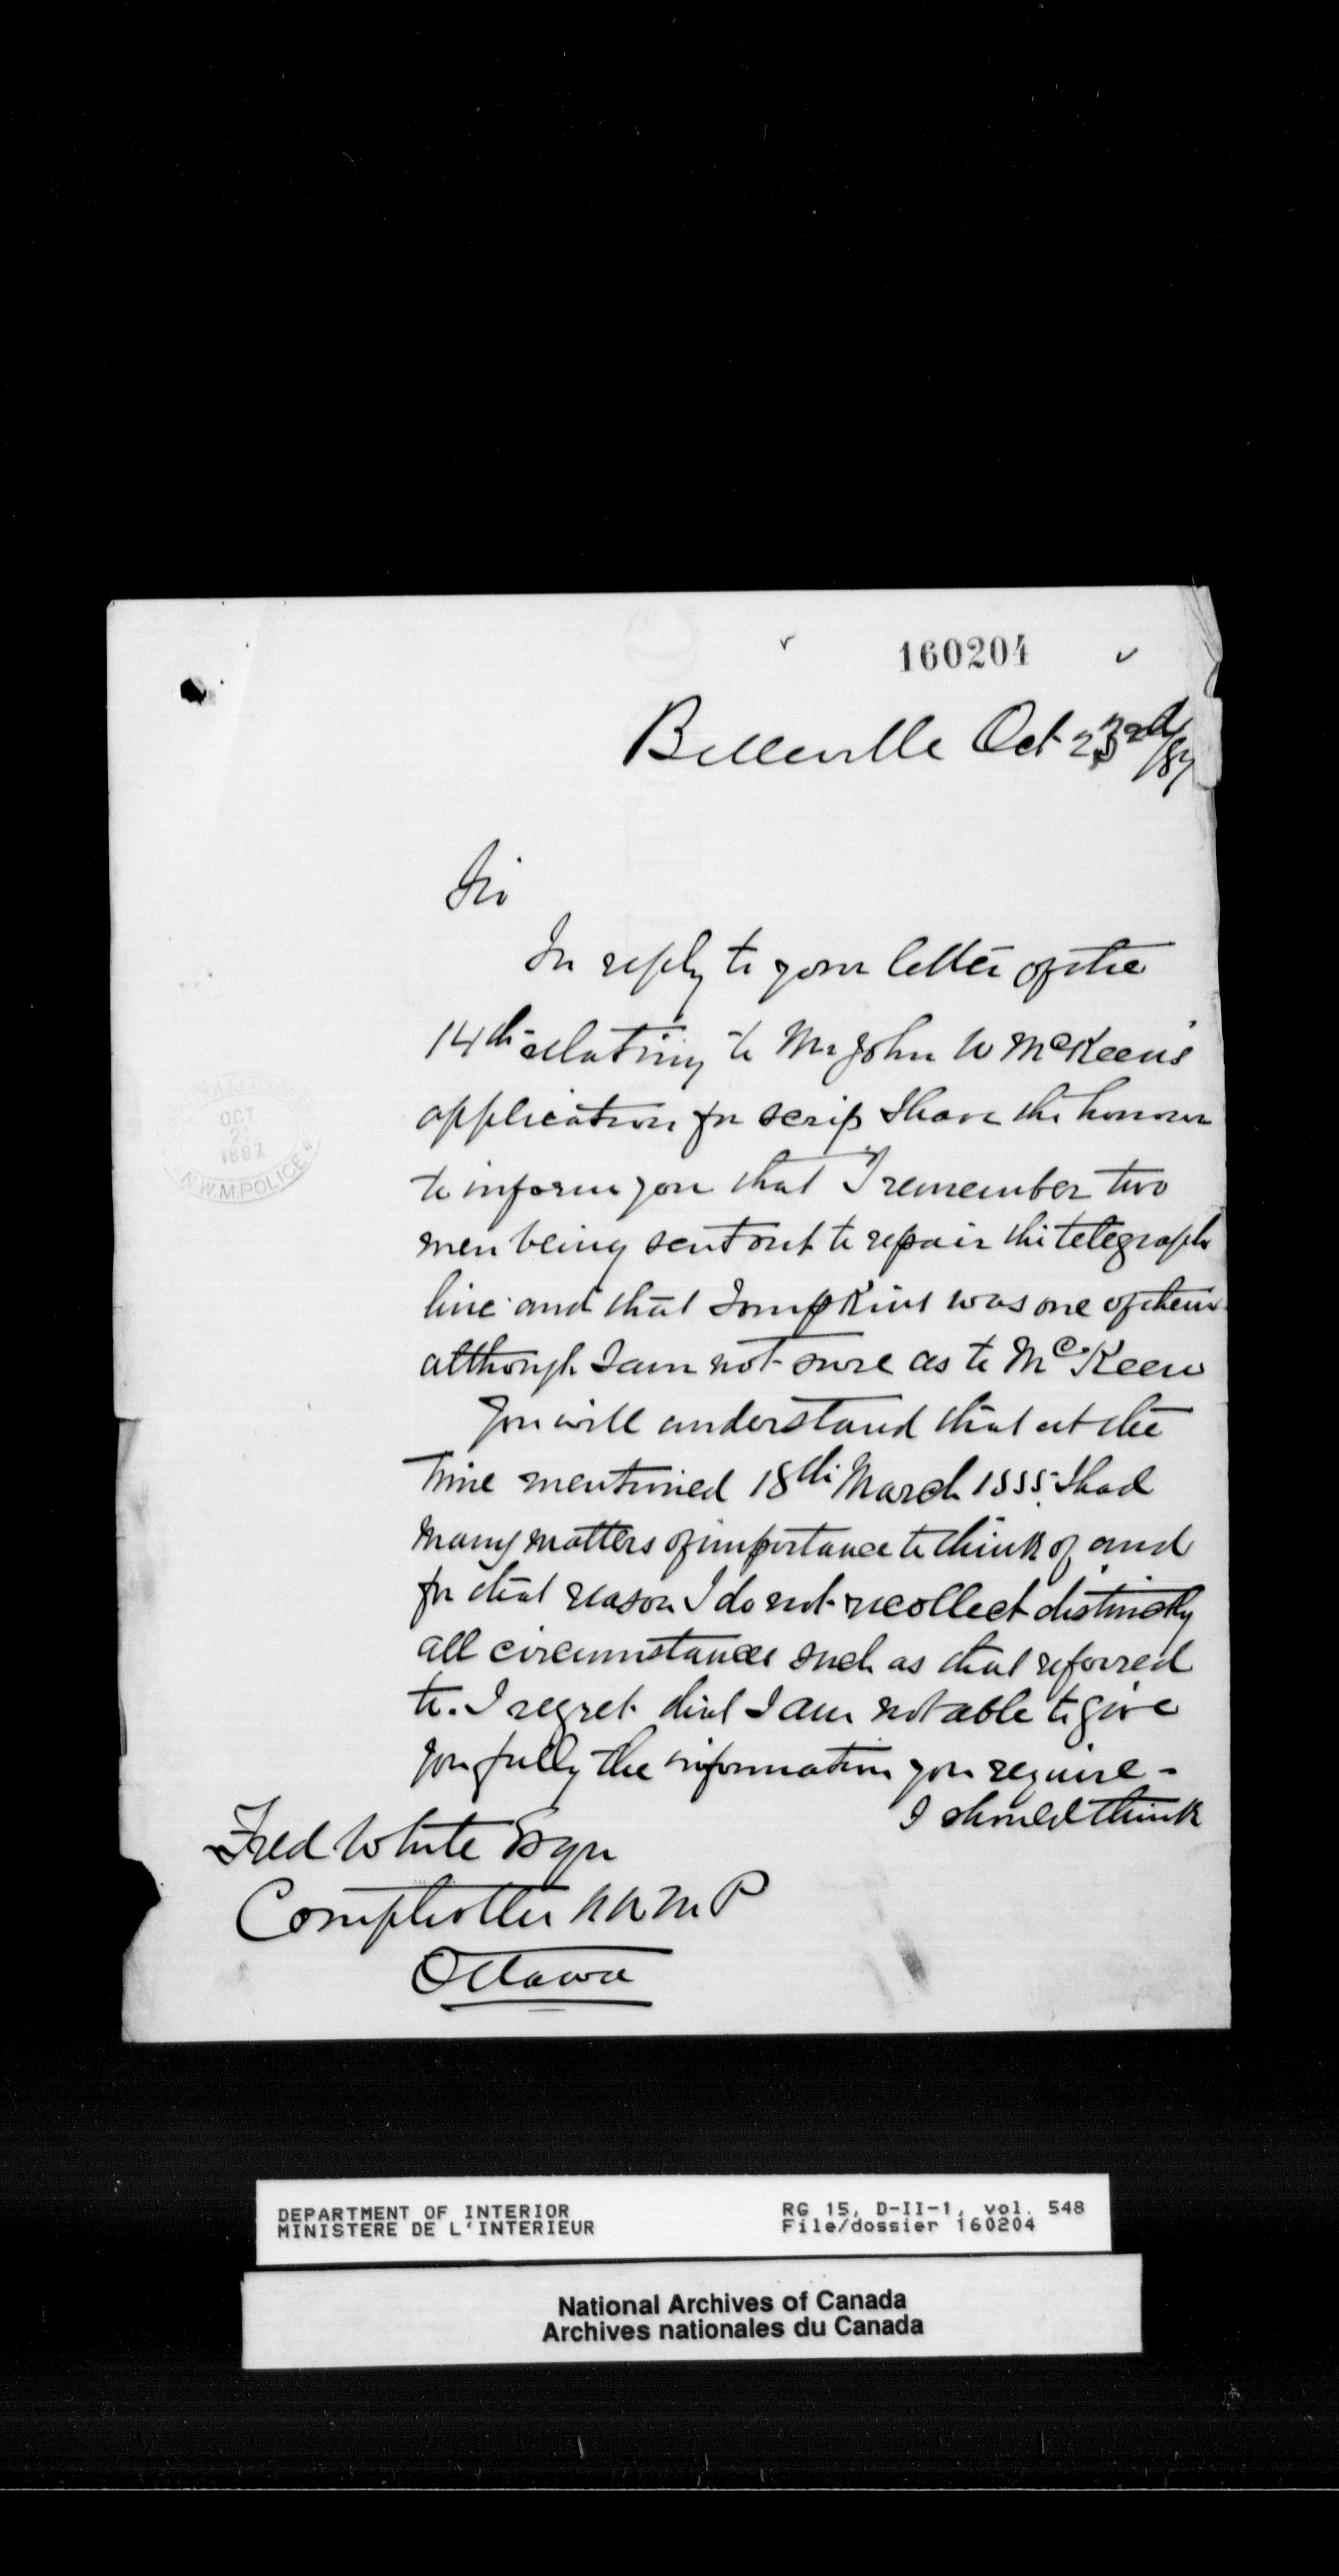 160204
Belleville Oct 23rd/87
Sir
In reply to your letter of the
14th relating to Mr John W McKeen's
application for scrip I have the honour
to inform you that I remember two
men being sent out to repair the telegraph
line and that Tompkins was one of them
although I am not sure as to McKeen
You will understand that at the
time mentioned 18th March 1885 I had
many matters of importance to think of and
for that reason I do not recollect distinctly
all circumstances such as that referred
to. I regret that I am not able to give
you fully the information you require -
I should think
Fred White Esqr
Comptroller N W M P
Ottawa
OCT
1887
N.W.M.POLICE
DEPARTMENT OF INTERIOR
MINISTERE DE L'INTERIEUR
RG 15, D-II-1, vol. 548
File/dossier 160204
National Archives of Canada
Archives nationales du Canada